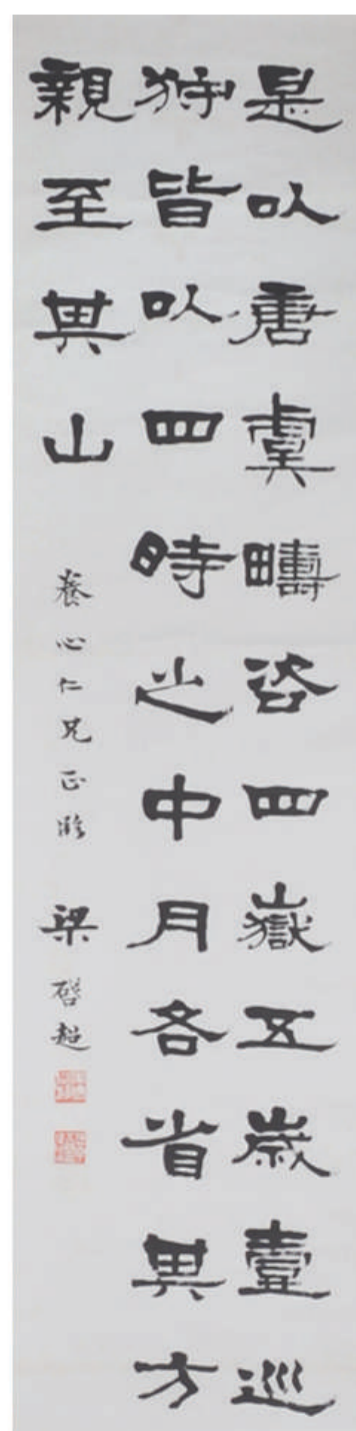 是以唐虞疇咨四嶽五歲壹巡
狩皆以四時之中月各省其方
親至其山
養心仁兄正臨
梁啓超